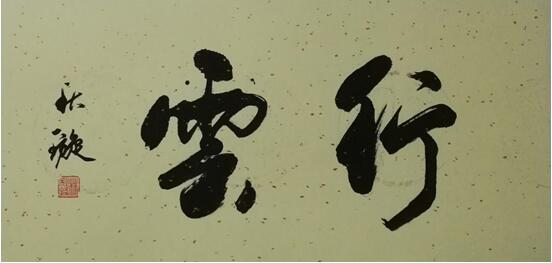 行雲
秋璇